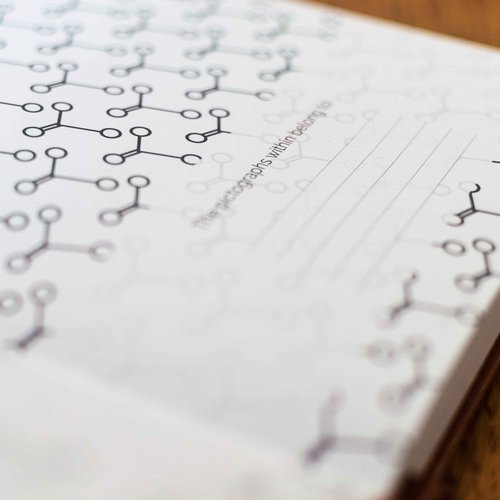 The pictographs within belong to: